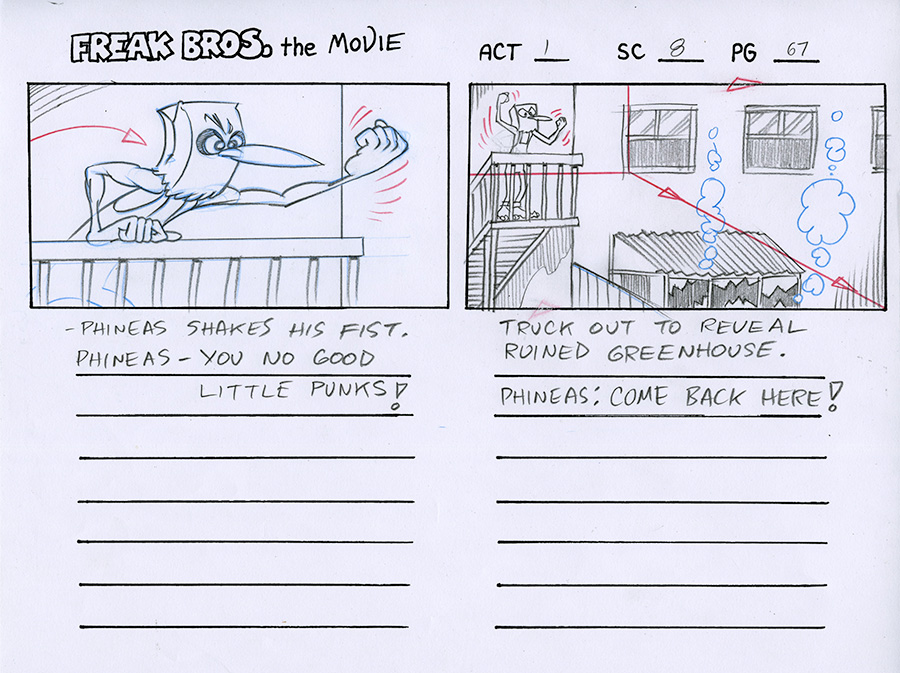 FREAK BROS. the MOVIE
ACT 1 SC 8 PG 67
- PHINEAS SHAKES HIS FIST.
PHINEAS - YOU NO GOOD
LITTLE PUNKS!
TRUCK OUT TO REVEAL
RUINED GREENHOUSE.
PHINEAS: COME BACK HERE!